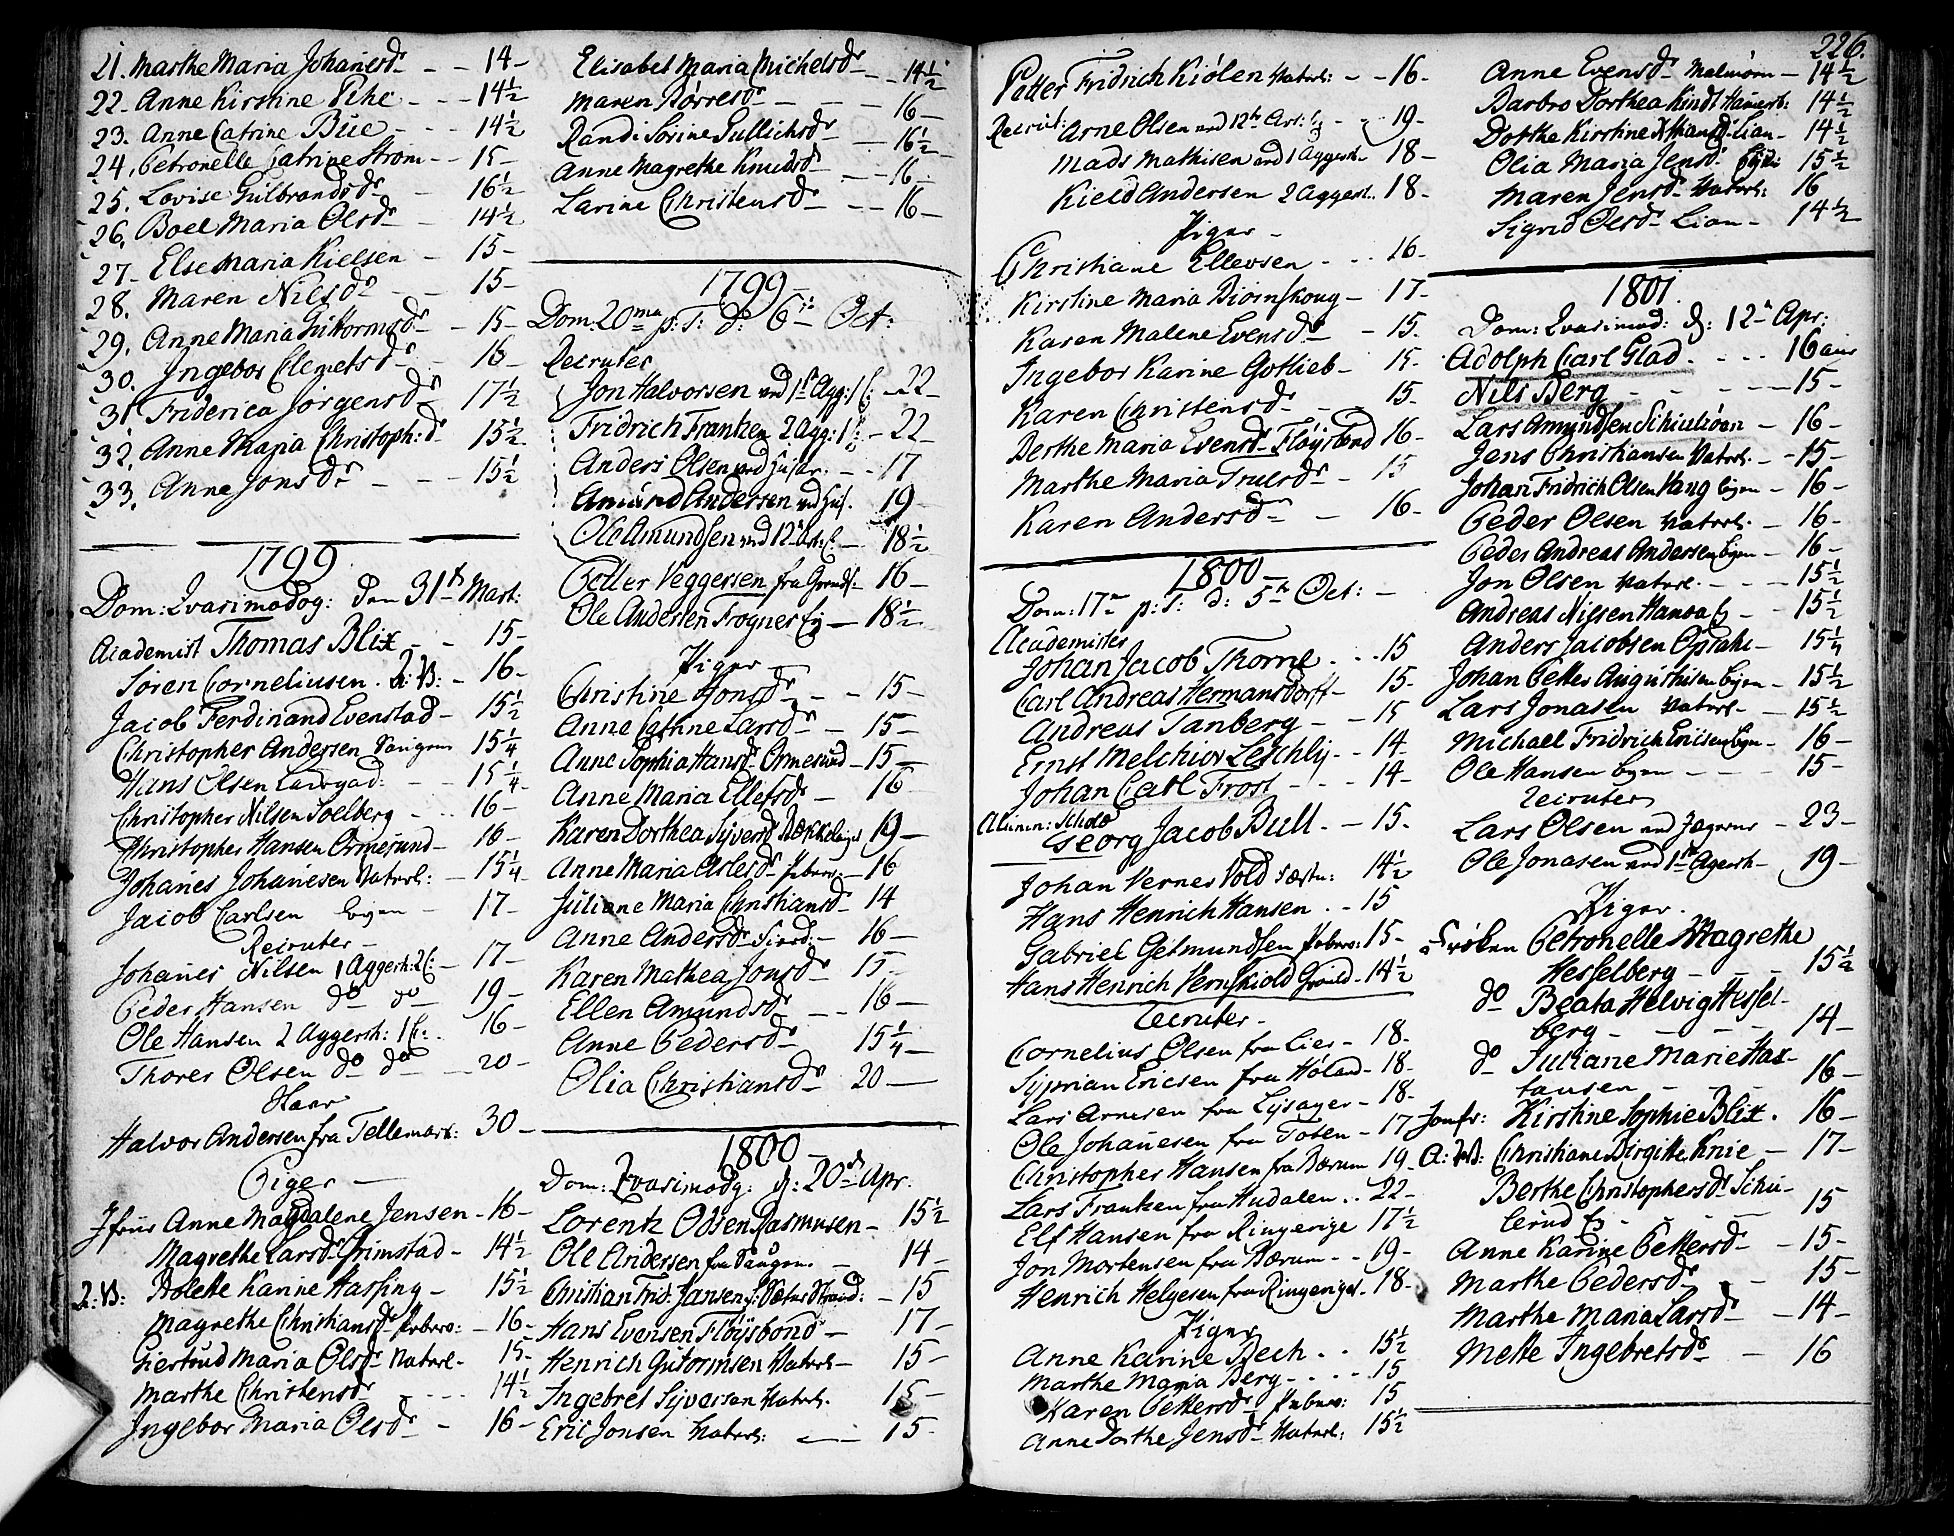 21. Marthe Maria Johanesdr - - 14 -
22. Anne Kirstine Pihe - - - 14 1/2
23. Anne Catrine Bue - - - 14 1/2
24. Petronelle Catrine Strøm - - 15 -
25. Lovise Gulbrandsdr - 16 1/2
26. Boel Maria Olsdr - - 14 1/2
27. Else Maria Kielsen - 15 -
28. Maren Nilsdr - - 15 -
29. Anne Maria Guttormsdr - 15 -
30. Ingebor Clemetsdr - 16 -
31. Friderica Jørgensdr - 17 1/2
32. Anne Maria Christoph: dr 15 1/2
33. Anne Jonsdr - - - 15 1/2
1799
Dom: Qvasimodog: den 31te Mart:
Academist Thomas Blix - - 15 -
Søren Corneliusen - 16 -
Jacob Ferdinand Evenstad - 15 1/2
Christopher Andersen Saugen 15 1/4
Hans Olsen - - 15 1/4
Christopher Nilsen Soelberg - - 16 -
Christopher Hansen Ormesund - 16 -
Johanes Johanesen Naterl: - 15 1/4
Jacob Carlsen Byen - 17 -
Recruter -
Johanes Nilsen 1 Aggersh: 2 C: - 17 -
Peder Hansen do do - 19 -
Ole Hansen 2 Aggersh: 1 C: - 16 -
Thores Olsen do do - 20 -
Halvor Andersen fra Tellemark: 30 -
Piger -
Jfrue Anne Magdalene Jensen - 16 -
Magrethe Larsdr Grimstad - 14 1/2
Bolette Karine Hasfing - 15 1/2
Magrethe Christiansdr Peberv: - 16 -
Giertrud Maria Olsdr Naterl - 15 -
Marthe Christensdr - - - 14 1/2
Ingebor Maria Olsdr - 16 -
Elisabet Maria Michelsdr - - 14 1/2
Maren Børresdr - - - 16 -
Randi Sorine Gullichsdr - 16 1/2
Anne Magrethe Knudsdr - - 16 -
Larine Christensdr - - 16 -
1799 -
Dom: 20ma p: T: d: 6te Oct:
Recruter
Jon Halvorsen ved 1ste Agg: 1 C: - 22 -
Fridrich Frantzen 2 Agg: 1 C: - 22 -
Anders Olsen ved Husar. - - 17
Amund Andersen ved Hus. 19 -
Ole Amundsen ved 12te Art: C - 18 1/2
Petter Veggersen fra Grønds. - 16 -
Ole Andersen Frogner Ej - 18 1/2
Piger -
Christine Jonsdr - - 15 -
Anne Catrine Larsdr - 15 -
Anne Sophia Hansdr Ormesund - 15 -
Anne Maria Ellefsdr - 16
Karen Dorthea Syversdr Bækkelaget 19 -
Anne Maria Aslesdr Peberv: - 16
Juliane Maria Christiansdr - 14
Anne Andersdr - 16 -
Karen Mathea Jonsdr - 15 -
Ellen Amundsdr - - 16 -
Anne Pedersdr - 15 1/4 -
Olia Christiansdr 20 -
1800 -
Dom: Qvasimodg: d: 20de Apr:
Lorentz Olsen Rasmusen - 15 1/2
Ole Andersen fra Saugen. - 14 -
Christian Frid: Jansen - 15
Hans Evensen Fløysbond - 17 -
Henrich Gutormsen Naterl - 15 -
Ingebret Syversen Naterl. 15 -
Eric Jonsen Naterl: - 15 -
226.
Petter Fridrich Kiølen Naterl: - - 16 -
Recrut: Arne Olsen ved 12te Art: - - 19 -
Mads Mathisen ved 1 Aggersh - 18 -
Kield Andersen 2 Aggersh.. 18 -
Piger -
Christiane Ellevsen - - - 16 -
Kirstine Maria Biørnskoug - 17 -
Karen Malene Evensdr - 15.
Ingebor Karine Gotlieb - 15 -
Karen Christensdr - 15 -
Berthe Maria Evensdr Fløysbond 16 -
Marthe Maria Truelsdr - 15
Karen Andersdr - 16 -
1800 -
Dom: 17de p: T: d: 5te Oct: -
Academister
Johan Jacob Thorne - - - 15
Carl Andreas Hermansdorff - 15 -
Andreas Tanberg - - 15
Ernst Melchior Leschly - - 14 -
Johan Carl Frost - - - 14 -
Georg Jacob Bull. - 15 -
Johan Vernes Vold 14 1/2
Hans Henrich Hansen - - 15
Gabriel Getmundsen Peberv: 15 -
Hans Henrich Vernskiold Grønld - 14 1/2
Recruter -
Cornelius Olsen fra Lier - 18 -
Syprian Ericsen fra Høland - 18 -
Lars Arnesen fra Lysager - 18 -
Ole Johanesen fra Toten - 17
Christopher Hansen fra Bærum 19 -
Lars Frantzen fra Hudalen - - 22 -
Elf Hansen fra Ringerige 17 1/2
Jon Mortensen fra Bærum - - 19 -
Henrich Helgesen fra Ringeriget - 18 -
Piger
Anne Karine Bech - - 15 1/2
Marthe Maria Berg - - - - 15
Karen Pettersdr Peberv: 15
Anne Dorthe Jensdr Naterl: 15 1/2
Anne Evensdr Malmøen - 14 1/2
Barbro Dorthea Kindt 14 1/2
Dorthe Kirstine Lian - 14 1/2
Olia Maria Jensdr 15 1/2
Maren Jensdr Naterl: 16
Sigrid Olsdr Lian - 14 1/2
1801.
Dom: Qvasimod: d: 12te Apr:
Adolph Carl Glad - - - 16 aar
Nils Berg - - - - 15 -
Lars Amundsen - 16 -
Jens Christiansen Naterl - - 15 -
Johan Fridrich Olsen Vang Byen - 16 -
Peder Olsen Naterl. - 16 -
Peder Andreas Andersen Byen - 16 -
Jon Olsen Naterl. - - - 15 1/2
Andreas Nilsen - - 15 1/2
Anders Jacobsen Opsahl - 15 1/4
Johan Petter Augustinsen Byen - 15 1/2
Lars Jonasen Naterl - - 15 1/2
Michael Fridrich Ericsen Byen - 16 -
Ole Hansen Byen - - - 15 -
Recruter
Lars Olsen ved Jægerne - 23 -
Ole Jonasen ved 1ste Agersh - 19 -
Piger.
Frøken Petronelle Magrethe
Hesselberg - - - 15 1/2
do Beata Helvig Hessel-
berg - - - - 14 -
do Juliane Marie Hax-
tausen - - - 16 -
Jomfr: Kirstine Sophie Blix. 16 -
Christiane Birgitte Knie - 17 -
Berthe Christophersdr Schu-
lerud Ej - - - 15
Anne Karine Pettersdr - - 15 -
Marthe Pedersdr - - 15 -
Marthe Maria Larsdr - 14 -
Mette Ingebretsdr - 16